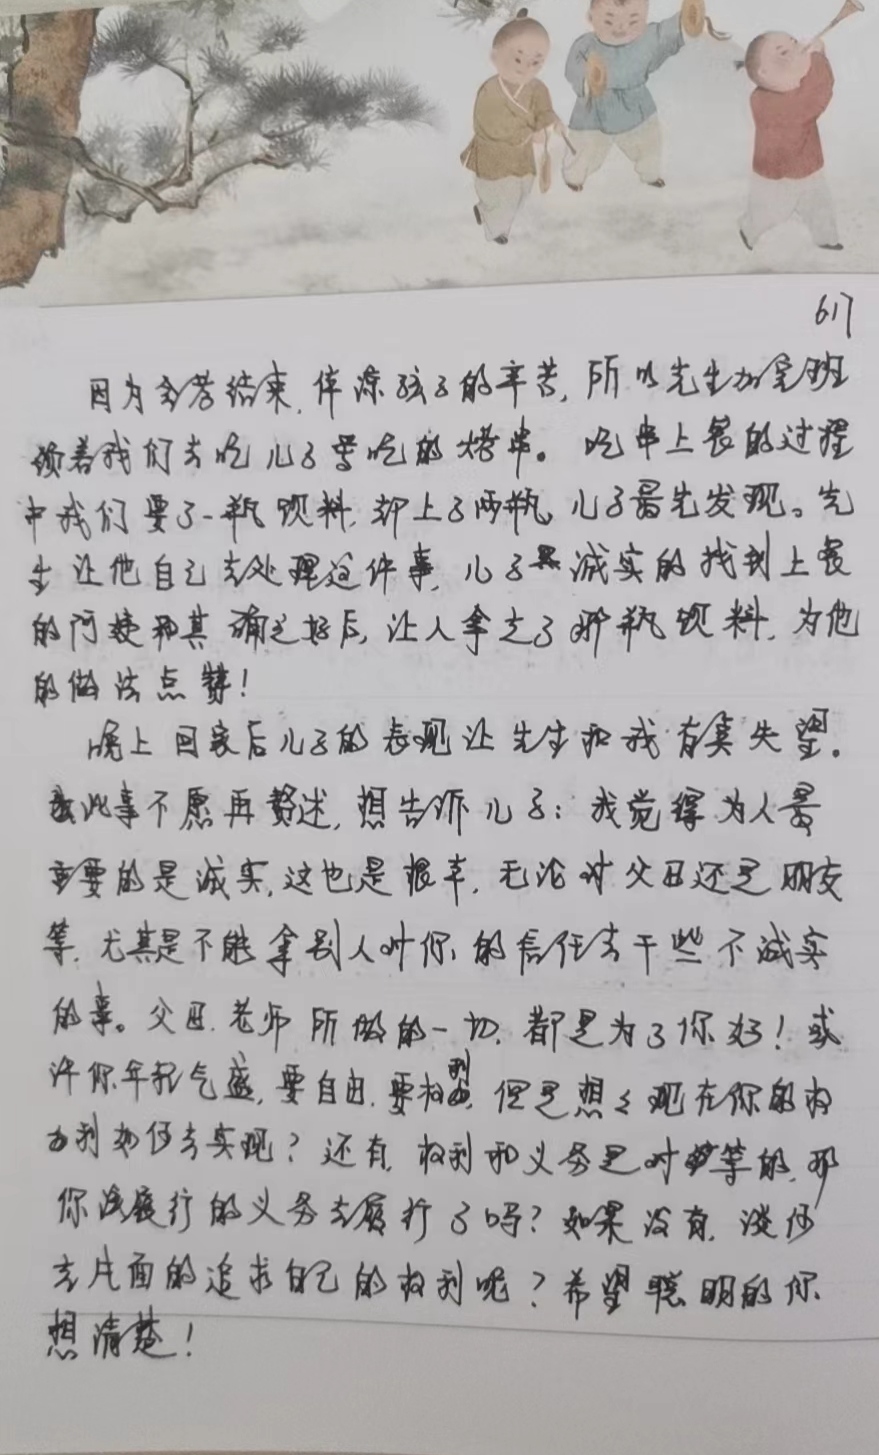 617
因为会考结束,体谅孩子的辛苦,所以先生加完班
领着我们去吃儿子要吃的烤串。吃串上餐的过程
中我们要了一瓶饮料,却上了两瓶,儿子最先发现。先
生让他自己去处理这件事,儿子 诚实的找到上餐
的阿姨和其确定好后,让人拿走了那瓶饮料,为他
的做法点赞!
晚上回家后儿子的表现让先生和我有奌失望。
此事不愿再赘述,想告诉儿子:我觉得为人最
重要的是诚实,这也是根本,无论对父母还是朋友
等,尤其是不能拿别人对你的信任去干些不诚实
的事。父母、老师所做的一切,都是为了你好!或
许你年轻气盛,要自由、要权利,但是想々现在你的权
利如何去实现?还有,权利和义务是对等的,那
你该履行的义务去履行了吗?如果没有,谈何
去片面的追求自己的权利呢?希望聪明的你
想清楚!